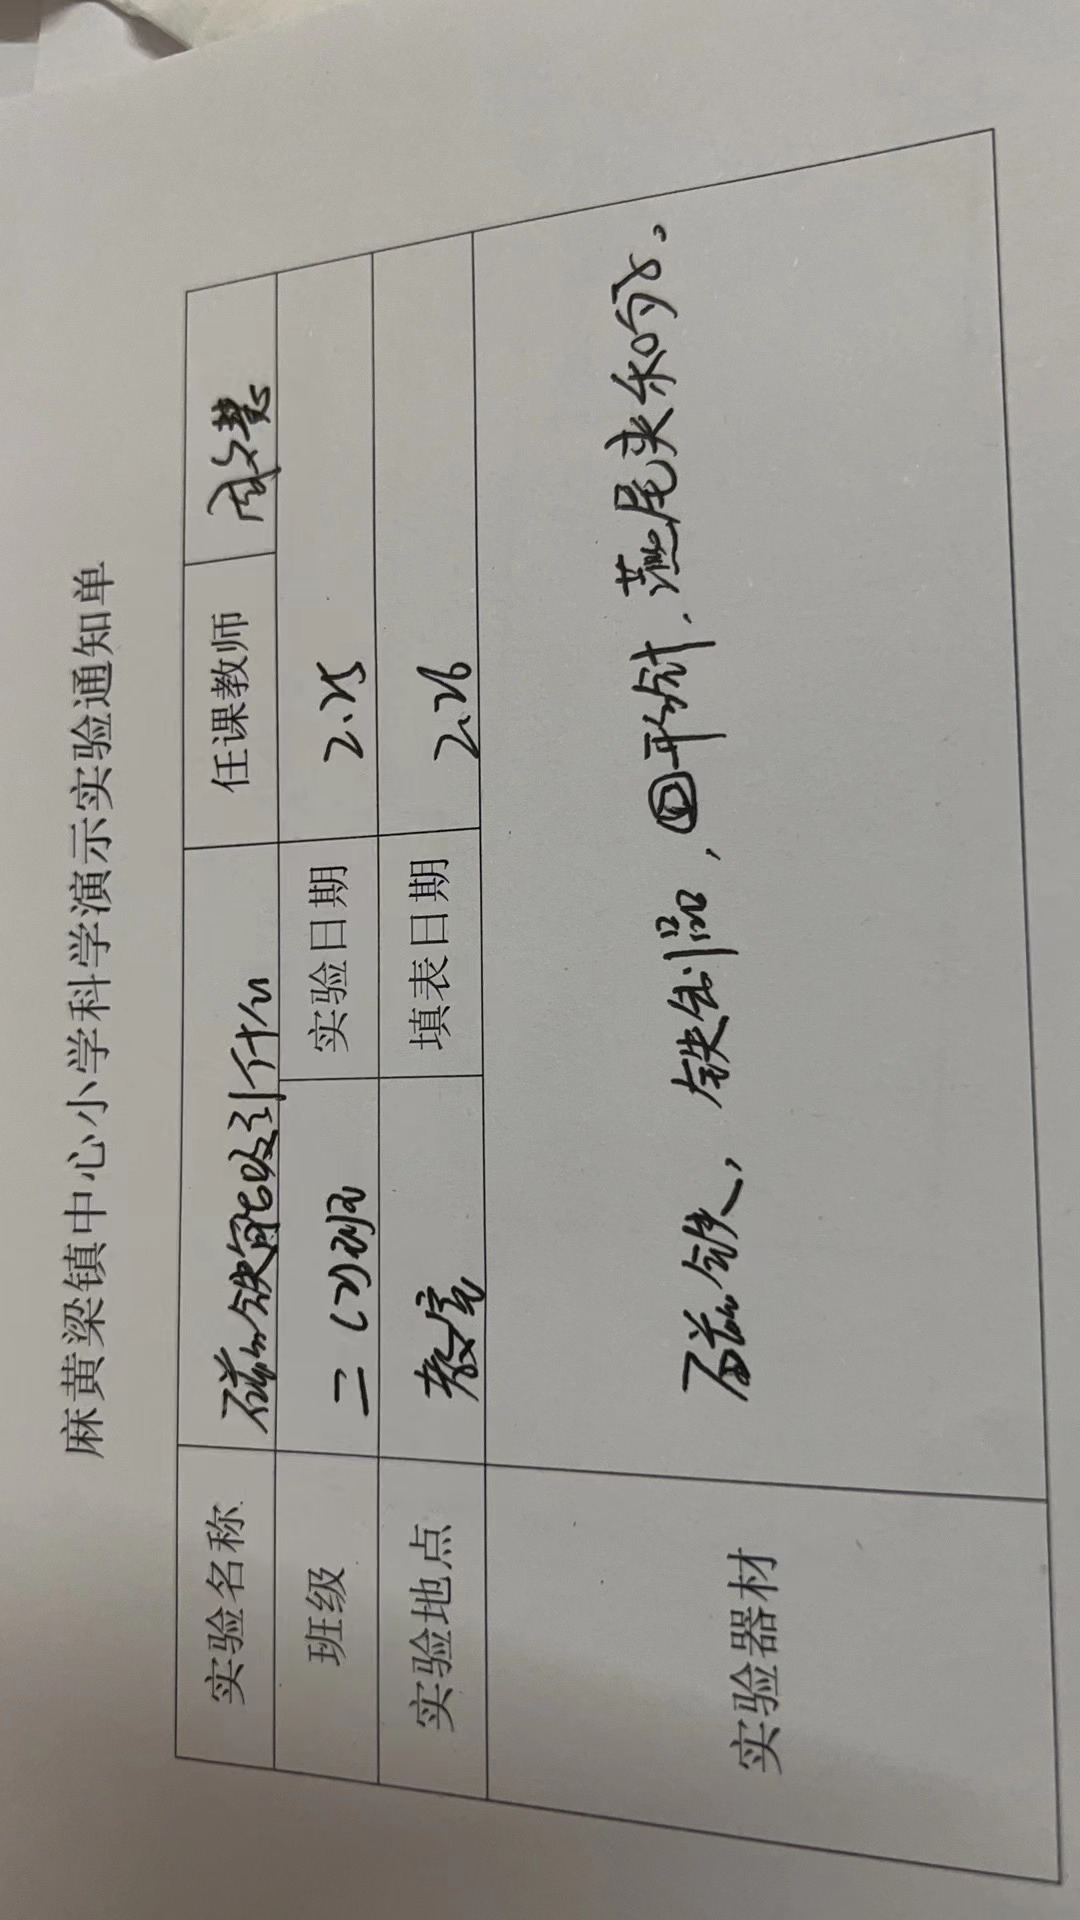 麻黄梁镇中心小学科学演示实验通知单
实验名称 磁铁能吸引什么 任课教师
班级 二(2)班 实验日期 2.25
实验地点 教室 填表日期 2.26
实验器材 磁铁, 铁制品, 回形针、燕尾夹